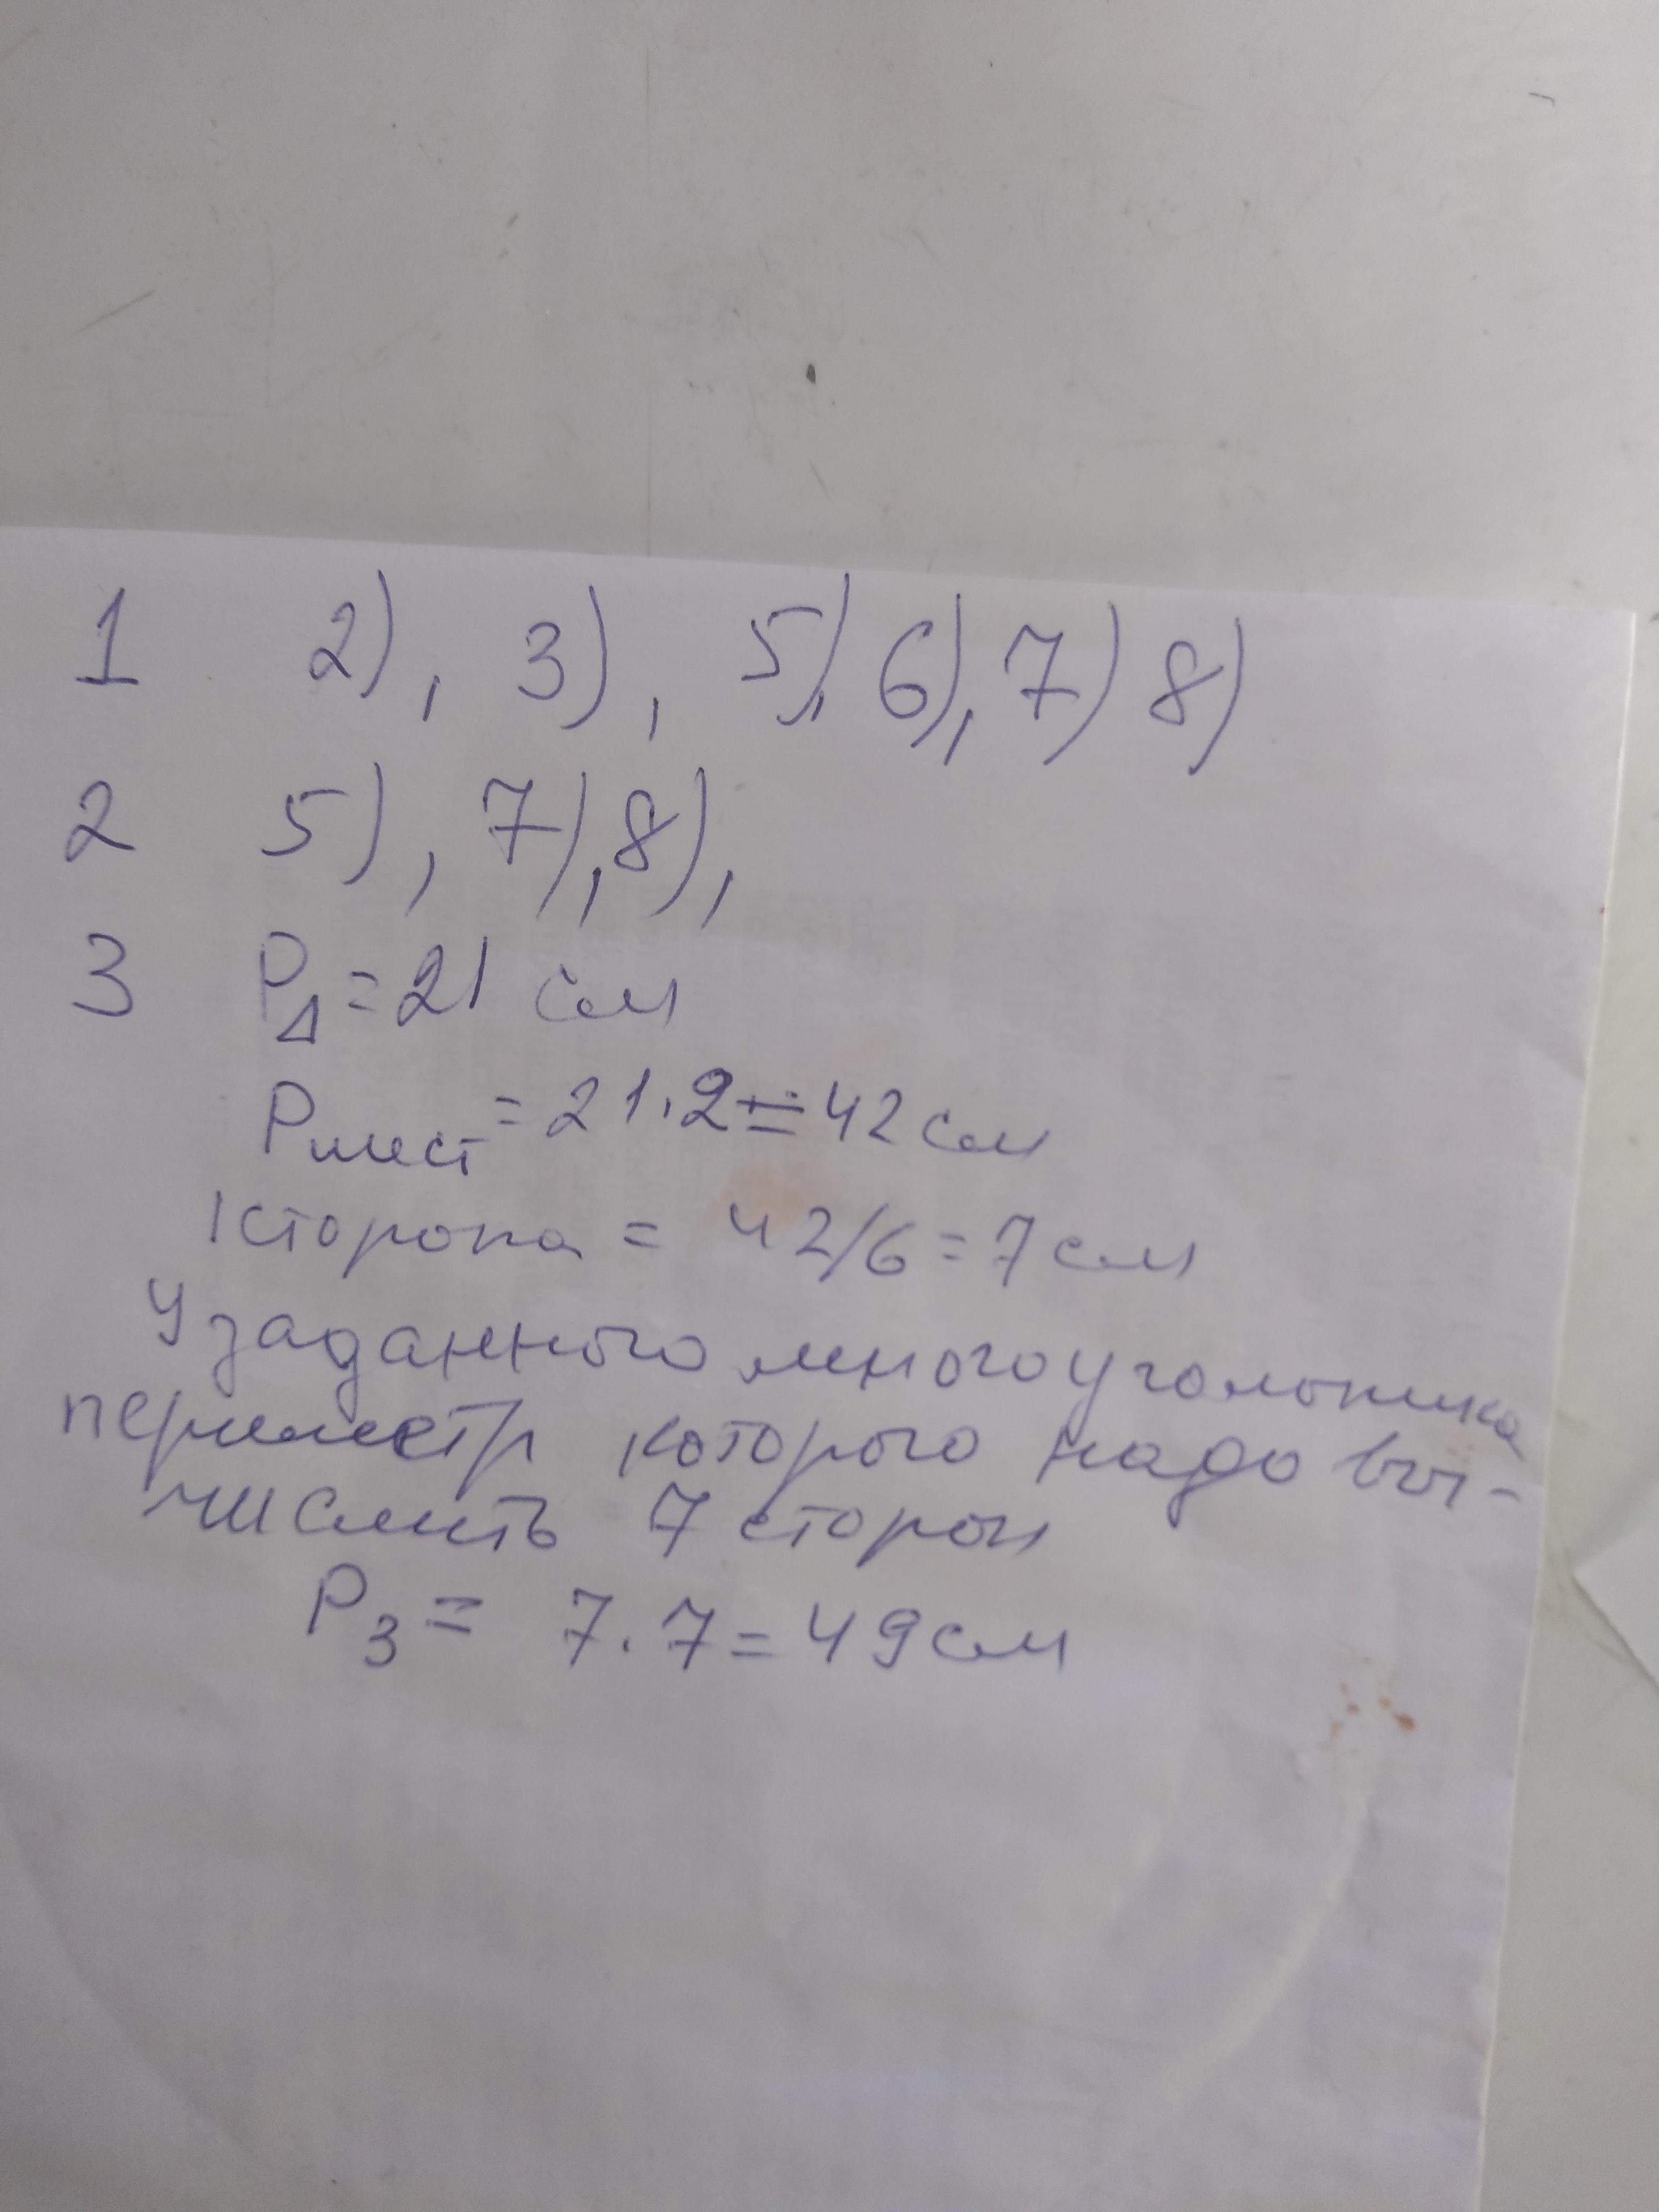 1 2), 3), 5), 6), 7) 8)
2 5), 7), 8),
3 P△ = 21 см
Pшест = 21.2 = 42 см
1сторона = 42/6 = 7 см
У заданного многоугольника
периметр которого надо вы-
числить 7 сторон
P3 = 7.7 = 49 см